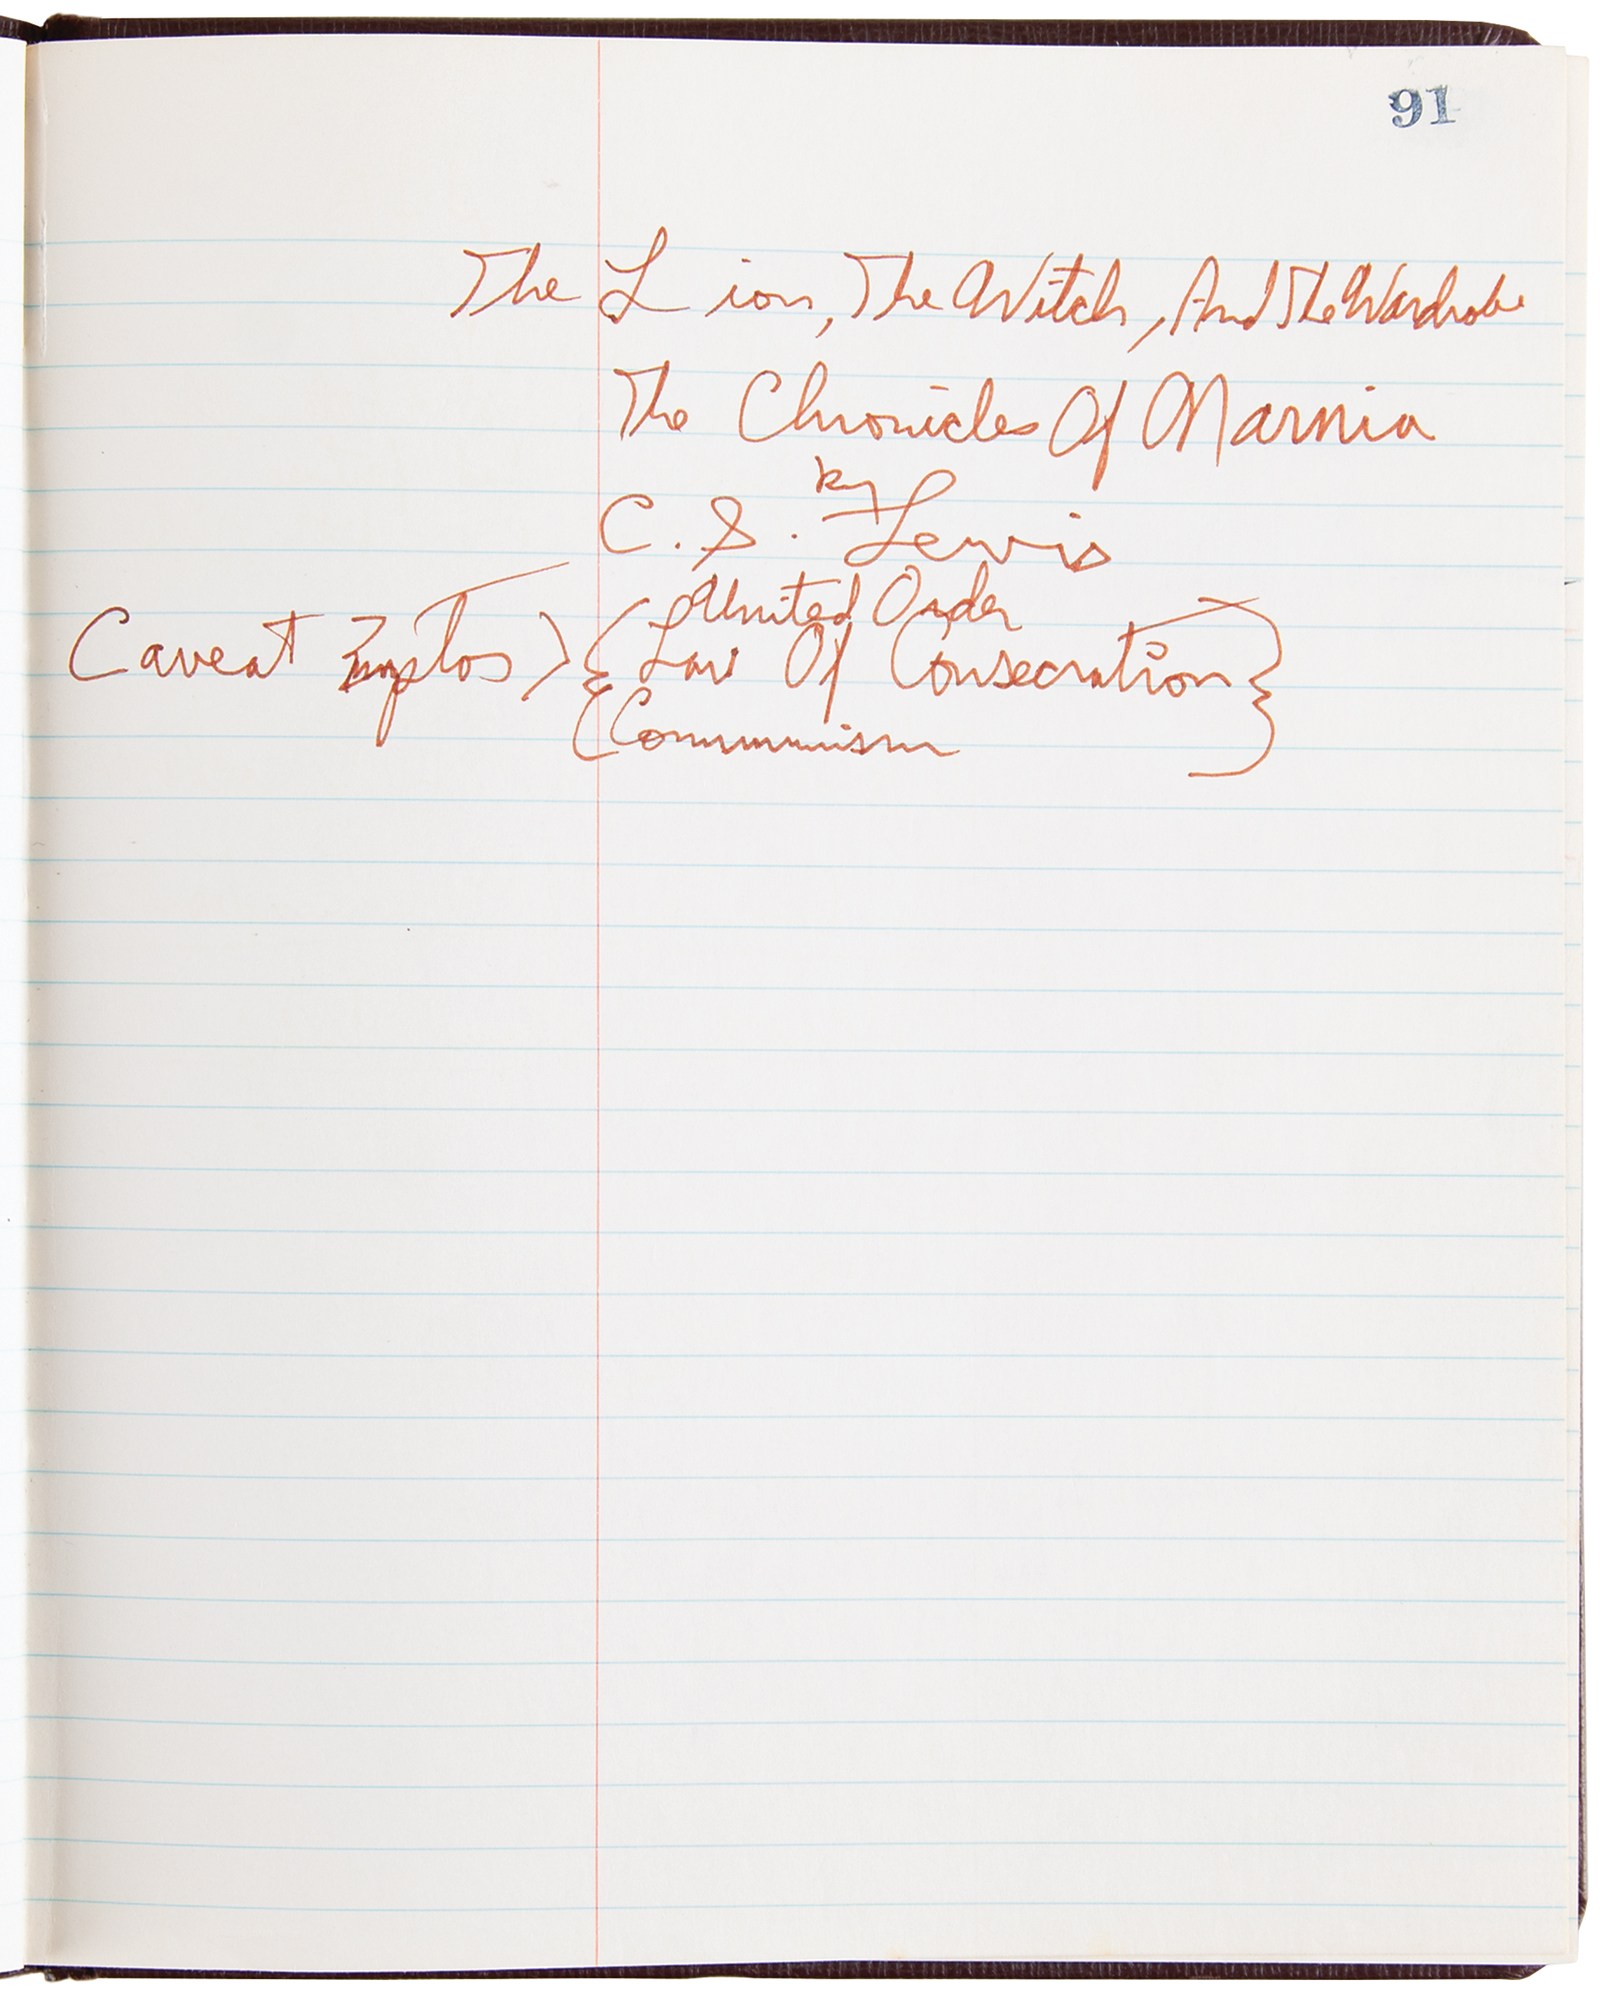 91
The Lion, The Witch, And The Wardrobe
The Chronicles Of Narnia
by
C. S. Lewis
United Order
Caveat } { Law Of Consecration }
Communism